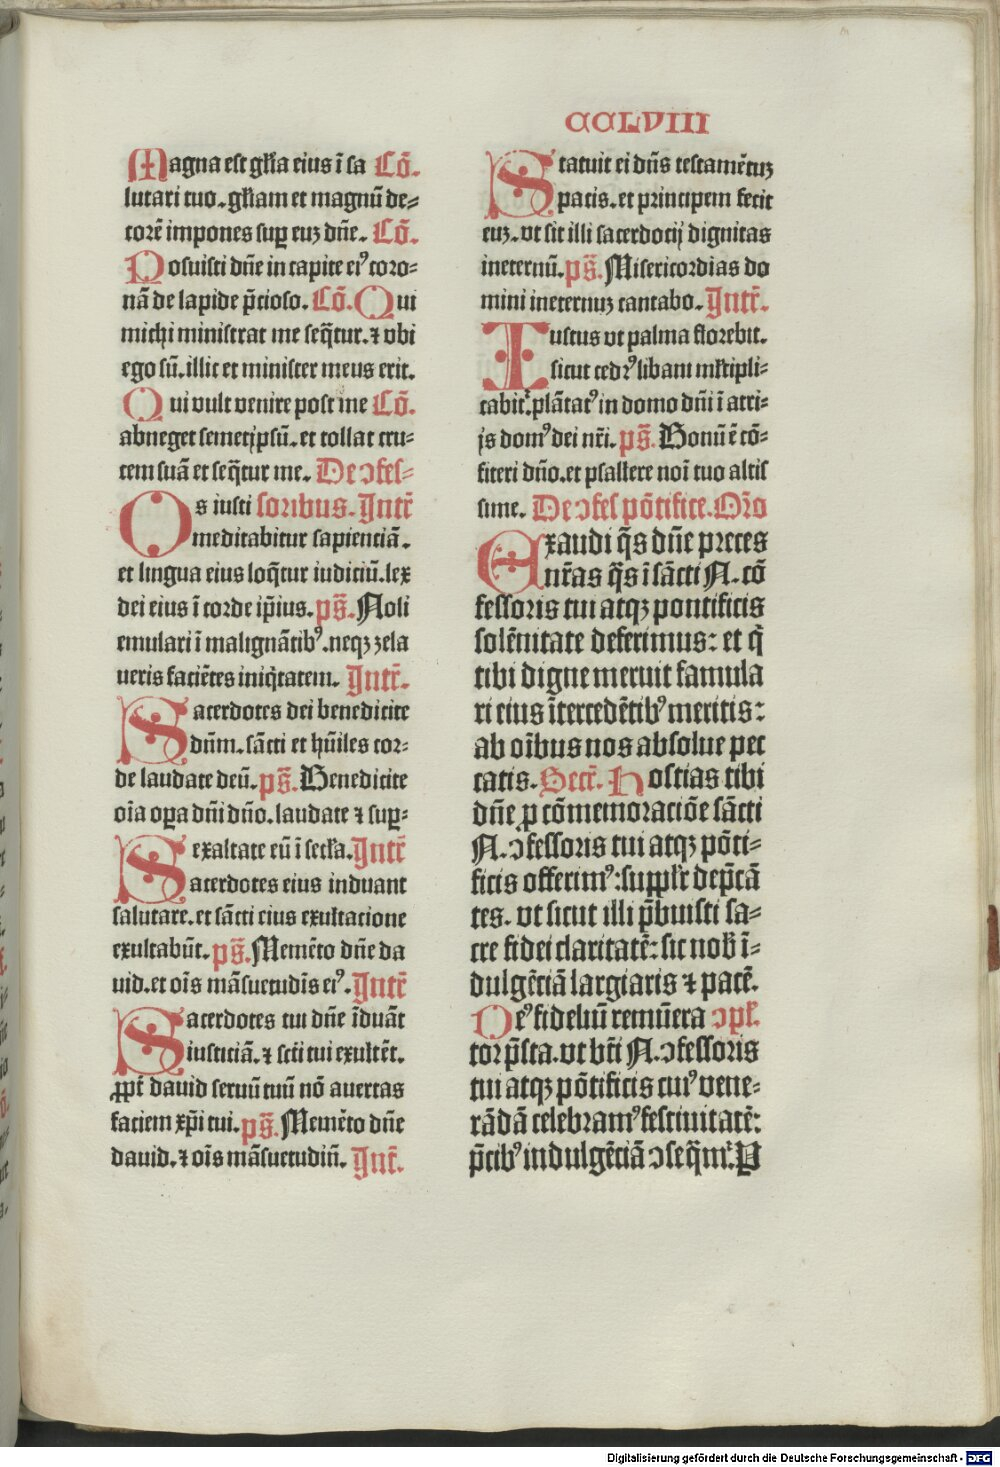 CCLVIII
Magna est gl'ia eius ī sa Cō.
lutari tuo. gl'iam et magnū de-
corē impones suꝑ euꝫ dn̄e. Cō.
Posuisti dn̄e in capite eiꝰ coro-
nā de lapide p̄cioso. Cō. Qui
michi ministrat me seq̄tur. ⁊ vbi
ego sū. illic et minister meus erit.
Qui vult venire post me Cō.
abneget semetip̄sū. et tollat cru-
cem suā et seq̄tur me. De ↄfes-
Os iusti soribus. Intr̄
meditabitur sapienciā.
et lingua eius loq̄tur iudiciū. lex
dei eius ī corde ip̄ius. ps̄. Noli
emulari ī malignātibꝰ. neqꝫ zela
ueris faciētes iniq̄tatem. Intr̄.
Sacerdotes dei benedicite
dn̄m. sācti et hūiles cor-
de laudate deū. ps̄. Benedicite
oīa oꝑa dn̄i dn̄o. laudate ⁊ suꝑ-
exaltate eū ī secl'a. Intr̄
Sacerdotes eius induant
salutare. et sācti eius exultacione
exultabūt. ps̄. Memēto dn̄e da
uid. et oīs māsuetudīs eiꝰ. Intr̄
Sacerdotes tui dn̄e īduāt
iusticiā. ⁊ scti tui exultēt.
ꝓpt̄ dauid seruū tuū nō auertas
faciem xp̄i tui. ps̄. Memēto dn̄e
dauid. ⁊ oīs māsuetudīn̄. Int̄.
Statuit ei dn̄s testamētuꝫ
pacis. et principem fecit
euꝫ. vt sit illi sacerdocij dignitas
ineternū. ps̄. Misericordias do
mini ineternuꝫ cantabo. Intr̄.
Iustus vt palma florebit.
sicut cedrꝰ libani ml'tipli-
cabit̄. plātatꝰ in domo dn̄i ī atri-
js domꝰ dei nr̄i. ps̄. Bonū ē cō-
fiteri dn̄o. et psallere noī tuo altis
sime. De ↄfes pōtifice. Or̄o
Exaudi q̄s dn̄e preces
nr̄as q̄s ī sācti N. cō
fessoris tui atqꝫ pontificis
solēnitate deferimus: et q̄
tibi digne meruit famula
ri eius ītercedētibꝰ meritis:
ab oībus nos absolue pec
catis. Secr̄. Hostias tibi
dn̄e ꝓ cōmemoraciōe sācti
N. ↄfessoris tui atqꝫ pōti-
ficis offerimꝰ: suppl'r dep̄cā
tes. vt sicut illi p̄buisti sa-
cre fidei claritatē: sic nob̄ ī-
dulgēciā largiaris ⁊ pacē.
Deꝰ fideliū remūera ↄpl'.
tor p̄sta. vt bt̄i N. ↄfessoris
tui atqꝫ pōtificis cuiꝰ vene-
rādā celebramꝰ festiuitatē:
p̄cibꝰ indulgēciā ↄseq̄mr̄. P
Digitalisierung gefördert durch die Deutsche Forschungsgemeinschaft - DFG